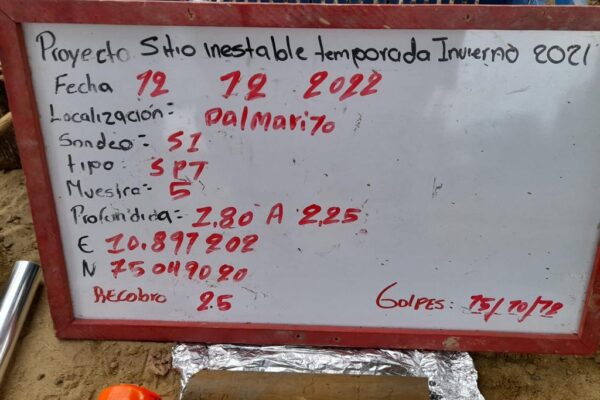 Proyecto Sitio inestable temporada Invierno 2021
Fecha 12 12 2022
Localización: Palmarito
Sondeo: S1
tipo: SPT
Muestra: 5
Profundida: 1,80 A 2,25
E 10.897202
N 75049020
RECobro 25
GOLPES: 15/10/12